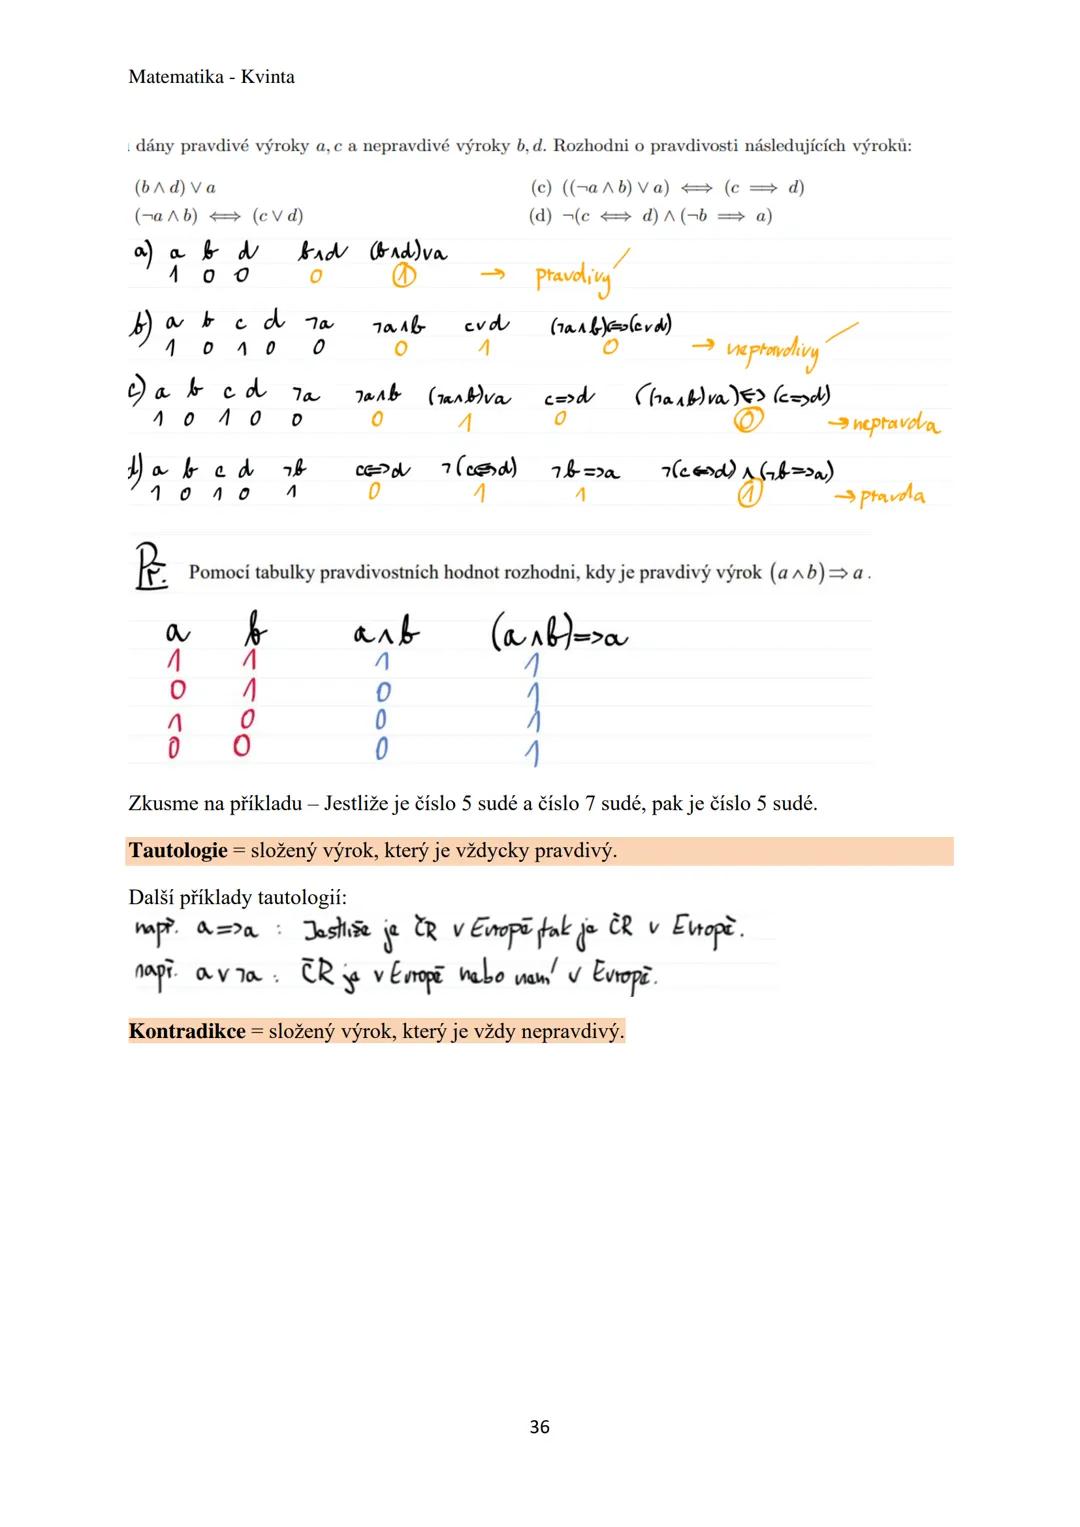 Matematika - Kvinta
dány pravdivé výroky a, c a nepravdivé výroky b, d. Rozhodni o pravdivosti následujících výroků:
(b ∧ d) ∨ a
(c) ((¬a ∧ b) ∨ a) ⟺ (c ⟹ d)
(¬a ∧ b) ⟺ (c ∨ d)
(d) ¬(c ⟺ d) ∧ (¬b ⟹ a)
a) a b d b∧d (b∧d)∨a
1 0 0 0 1 → pravdivý
b) a b c d ¬a ¬a∧b c∨d (¬a∧b)⇔(c∨d)
1 0 1 0 0 0 1 0 → nepravdivý
c) a b c d ¬a ¬a∧b (¬a∧b)∨a c=>d ((¬a∧b)∨a)⇔(c=>d)
1 0 1 0 0 0 1 0 0 → nepravda
d) a b c d ¬b c⇔d ¬(c⇔d) ¬b=>a ¬(c⇔d)∧(¬b=>a)
1 0 1 0 1 0 1 1 1 → pravda
Př. Pomocí tabulky pravdivostních hodnot rozhodni, kdy je pravdivý výrok (a∧b)⇒a.
a b a∧b (a∧b)=>a
1 1 1 1
0 1 0 1
1 0 0 1
0 0 0 1
Zkusme na příkladu – Jestliže je číslo 5 sudé a číslo 7 sudé, pak je číslo 5 sudé.
Tautologie = složený výrok, který je vždycky pravdivý.
Další příklady tautologií:
např. a=>a : Jestliže je ČR v Evropě tak je ČR v Evropě.
např. a∨¬a : ČR je v Evropě nebo není v Evropě.
Kontradikce = složený výrok, který je vždy nepravdivý.
36